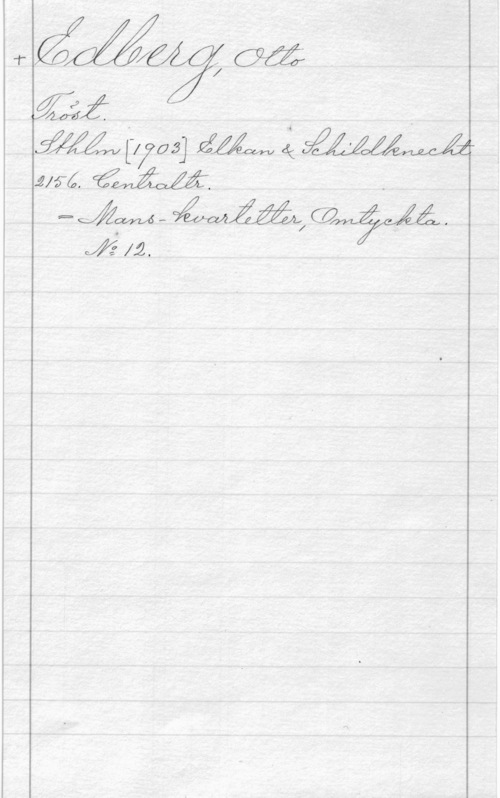 + Edberg, Otto
Tröst.
Sthlm [1903] Elkan & Schildknecht
2156. Centraltr.
= Mans-kvartetter, Omtyckta.
№ 12.